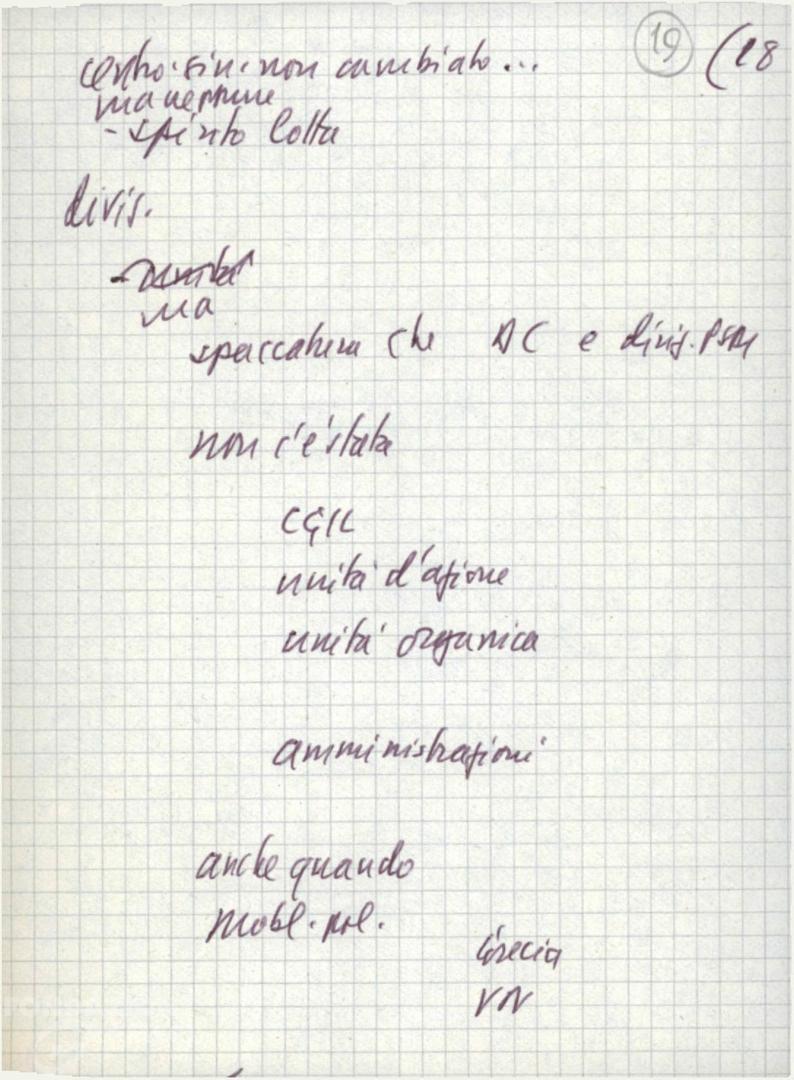 19 (18
centro-sin. non cambiato...
ma neppure
- spirito lotta
divis.
ma
spaccatura che DC e divis. PSU
non c'è stata
CGIL
unità d'azione
unità organica
amministrazioni
anche quando
probl. pol.
Grecia
VN